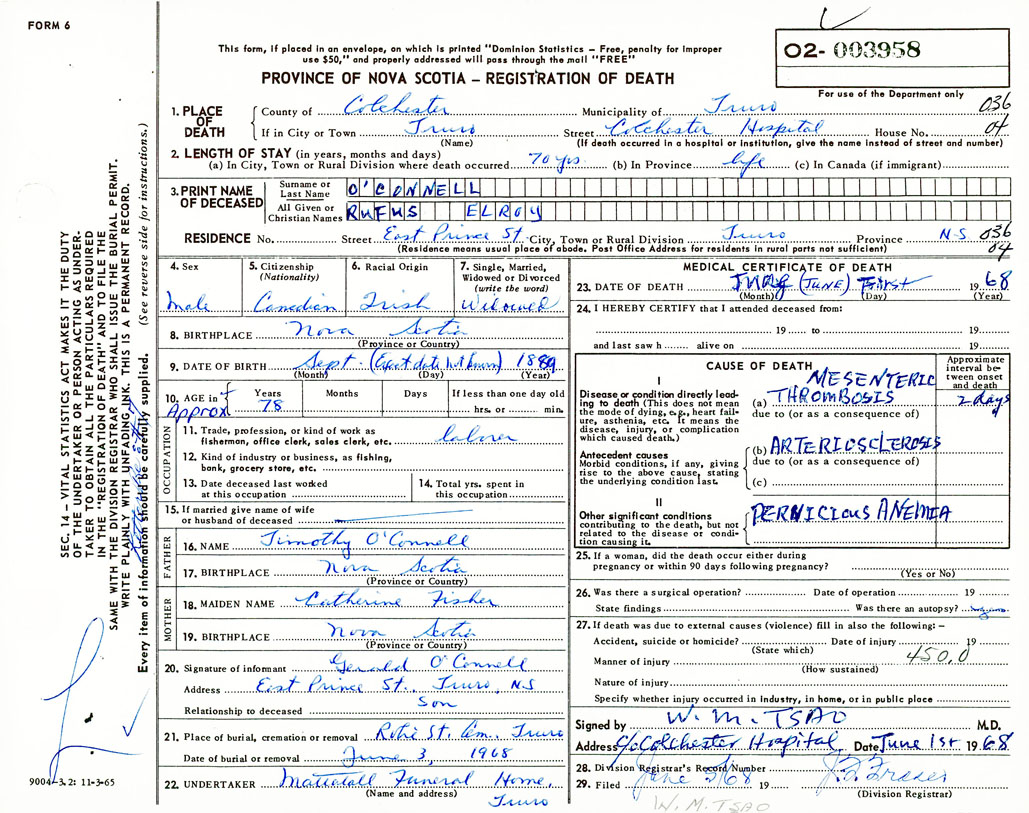 FORM 6
This form, if placed in an envelope, on which is printed "Dominion Statistics – Free, penalty for improper
use $50," and properly addressed will pass through the mail "FREE"
PROVINCE OF NOVA SCOTIA – REGISTRATION OF DEATH
02- 003958
For use of the Department only
1. PLACE OF DEATH County of Colchester Municipality of Truro 036
If in City or Town Truro Street Colchester Hospital House No. 04
(Name) (If death occurred in a hospital or institution, give the name instead of street and number)
2. LENGTH OF STAY (in years, months and days)
(a) In City, Town or Rural Division where death occurred 70 yrs. (b) In Province life (c) In Canada (if immigrant)
3. PRINT NAME OF DECEASED Surname or Last Name O'CONNELL
All Given or Christian Names RUFUS ELROY
RESIDENCE No. Street East Prince St. City, Town or Rural Division Truro Province N.S. 036
(Residence means usual place of abode. Post Office Address for residents in rural parts not sufficient) 04
4. Sex Male
5. Citizenship (Nationality) Canadian
6. Racial Origin Irish
7. Single, Married, Widowed or Divorced (write the word) Widowed
8. BIRTHPLACE Nova Scotia
(Province or Country)
9. DATE OF BIRTH Sept. (Exact date not known) 1889
(Month) (Day) (Year)
10. AGE in Approx Years 78 Months Days If less than one day old hrs. or min.
OCCUPATION
11. Trade, profession, or kind of work as fisherman, office clerk, sales clerk, etc. laborer
12. Kind of industry or business, as fishing, bank, grocery store, etc.
13. Date deceased last worked at this occupation
14. Total yrs. spent in this occupation
15. If married give name of wife or husband of deceased
FATHER
16. NAME Timothy O'Connell
17. BIRTHPLACE Nova Scotia
(Province or Country)
MOTHER
18. MAIDEN NAME Catherine Fisher
19. BIRTHPLACE Nova Scotia
(Province or Country)
20. Signature of informant Gerald O'Connell
Address East Prince St., Truro, N.S
Relationship to deceased Son
21. Place of burial, cremation or removal Robie St. Cem. Truro
Date of burial or removal June 3, 1968
22. UNDERTAKER Mattatall Funeral Home,
(Name and address) Truro
MEDICAL CERTIFICATE OF DEATH
23. DATE OF DEATH (JUNE) First 1968
(Month) (Day) (Year)
24. I HEREBY CERTIFY that I attended deceased from:
19 to 19
and last saw h alive on 19
CAUSE OF DEATH
Approximate interval between onset and death
I
Disease or condition directly leading to death (This does not mean the mode of dying, e.g., heart failure, asthenia, etc. It means the disease, injury, or complication which caused death.)
(a) MESENTERIC THROMBOSIS 2 days
due to (or as a consequence of)
Antecedent causes
Morbid conditions, if any, giving rise to the above cause, stating the underlying condition last.
(b) ARTERIOSCLEROSIS
due to (or as a consequence of)
(c)
II
Other significant conditions
contributing to the death, but not related to the disease or condition causing it.
PERNICIOUS ANEMIA
25. If a woman, did the death occur either during
pregnancy or within 90 days following pregnancy?
(Yes or No)
26. Was there a surgical operation? Date of operation 19
State findings Was there an autopsy?
27. If death was due to external causes (violence) fill in also the following: –
Accident, suicide or homicide? Date of injury 19
(State which) 450.0
Manner of injury
(How sustained)
Nature of injury
Specify whether injury occurred in industry, in home, or in public place
Signed by W. M. TSAO M.D.
Address c/o Colchester Hospital Date June 1st 1968
28. Division Registrar's Record Number
29. Filed June 5/68 19 J. D. Fraser
(Division Registrar)
W. M. TSAO
SEC. 14 – VITAL STATISTICS ACT MAKES IT THE DUTY
OF THE UNDERTAKER OR PERSON ACTING AS UNDER-
TAKER TO OBTAIN ALL THE PARTICULARS REQUIRED
IN THE "REGISTRATION OF DEATH" AND TO FILE THE
SAME WITH THE DIVISION REGISTRAR WHO SHALL ISSUE THE BURIAL PERMIT.
WRITE PLAINLY WITH UNFADING INK. THIS IS A PERMANENT RECORD.
Every item of information should be carefully supplied. (See reverse side for instructions.)
9004–3.2: 11-3-65